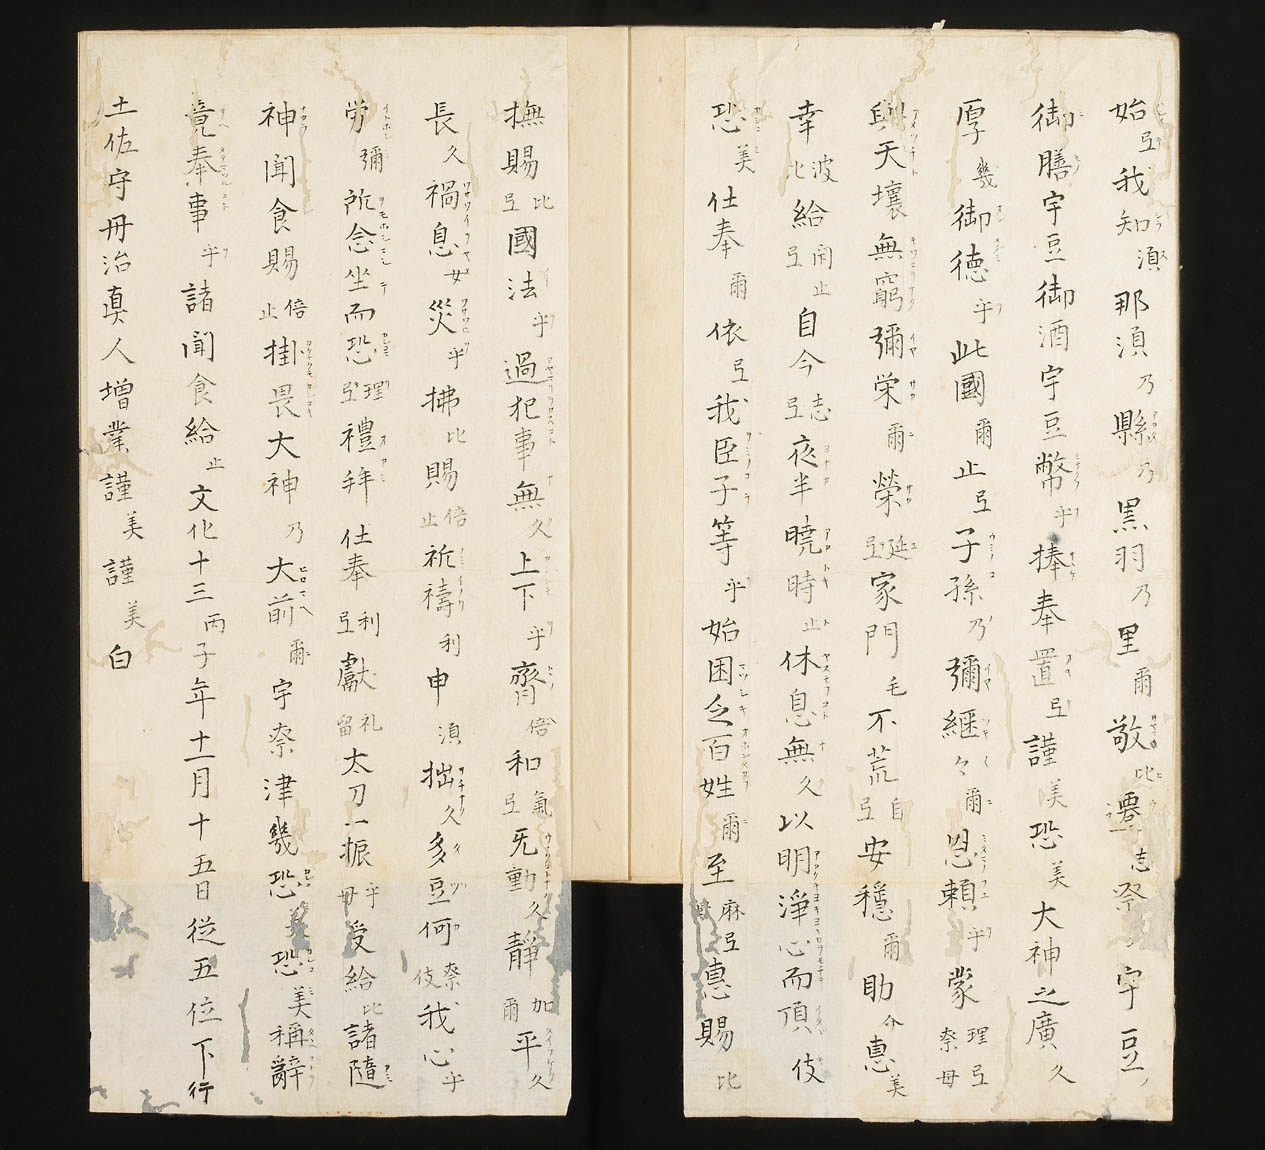 始弖我知湏那湏乃縣乃黒羽乃里爾敬比遷志祭宇豆
御膳宇豆御酒宇豆幣乎捧奉置弖謹美恐美大神之廣久
厚幾御徳乎此國爾止弖子孫乃彌継々爾恩頼乎蒙理弖奈毋
與天壤無窮彌栄爾榮延弖家門毛不荒自弖安穏爾助介惠美
幸波比給閇止弖自今志弖夜半暁時止休息無久以明淨心而頂伎
恐美仕奉爾依弖我臣子等乎始困乏百姓爾至麻弖惠賜比
撫賜比弖國法乎過犯事無久上下乎齊倍和氣弖旡動久靜加爾平久
長久禍息女災乎拂比賜倍止祈禱利申湏拙久多豆何奈伎我心乎
労彌所念坐而恐理弖禮拜仕奉利弖獻礼留太刀一振乎毋受給比諸随
神聞食賜倍止掛畏大神乃大前爾宇奈津幾恐美恐美稱辭
竟奉事乎諸聞食給止文化十三丙子年十一月十五日從五位下行
土佐守丹治真人増業謹美謹美白